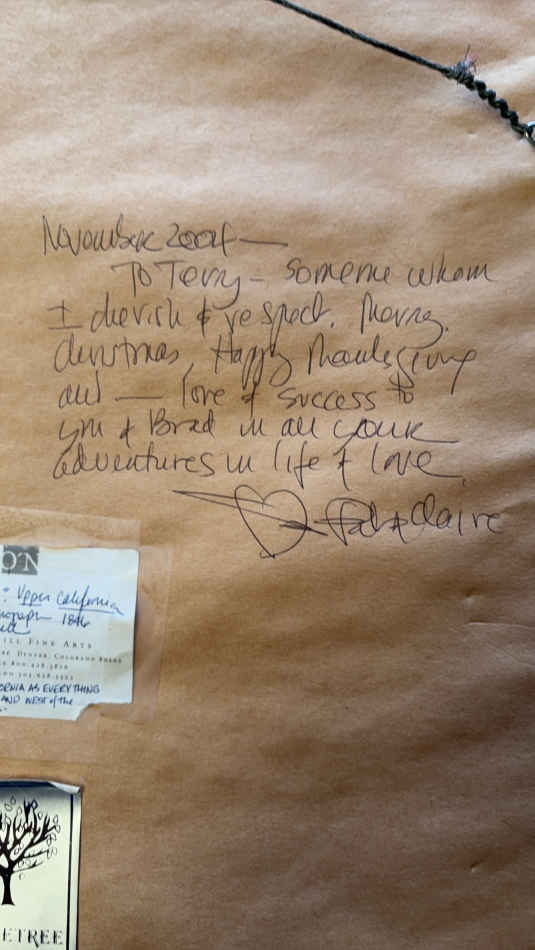 November 2004 —
To Terry - someone whom
I cherish & respect. Merry
Christmas, Happy Thanksgiving
and — love & success to
you & Brad in all your
adventures in life & love.
& Claire
: Upper California
1846
ILL FINE ARTS
DENVER, COLORADO
ORNIA AS EVERYTHING
AND WEST of the
ETREE